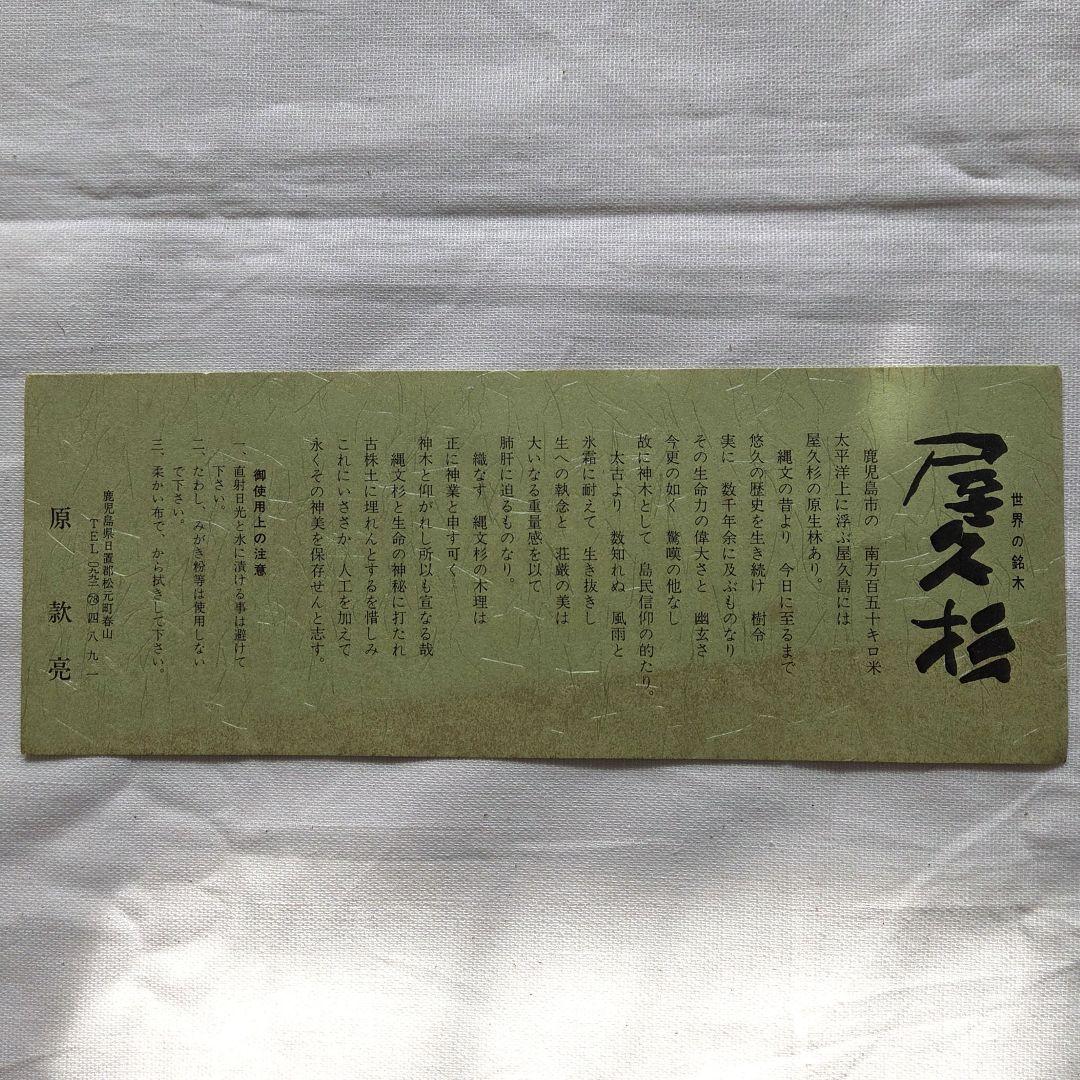 世界の銘木
屋久杉
鹿児島市の　南方百五十キロ米
太平洋上に浮ぶ屋久島には
屋久杉の原生林あり。
縄文の昔より　今日に至るまで
悠久の歴史を生き続け　樹令
実に　数千年余に及ぶものなり
その生命力の偉大さと　幽玄さ
今更の如く　驚嘆の他なし
故に神木として　島民信仰の的たり。
太古より　数知れぬ　風雨と
氷霜に耐えて　生き抜きし
生への執念と　荘厳の美は
大いなる重量感を以て
肺肝に迫るものなり。
織なす　縄文杉の木理は
正に神業と申す可く
神木と仰がれし所以も宣なる哉
縄文杉と生命の神秘に打たれ
古株土に埋れんとするを惜しみ
これにいささか　人工を加えて
永くその神美を保存せんと志す。
御使用上の注意
一、直射日光と水に漬ける事は避けて
下さい。
二、たわし、みがき粉等は使用しない
で下さい。
三、柔かい布で、から拭きして下さい。
鹿児島県日置郡松元町春山
TEL〔〇九九二〕㊆四八九一
原　款　亮